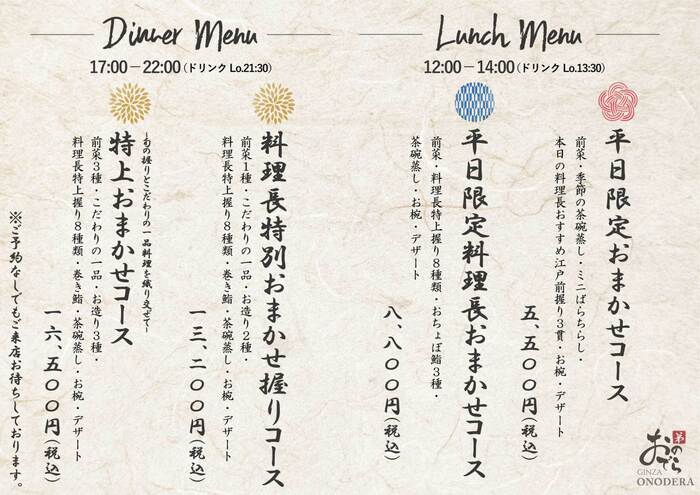 Dinner Menu
17:00－22:00(ドリンクLo.21:30)
料理長特別おまかせ握りコース
前菜1種・こだわりの一品・お造り2種・
料理長特上握り8種類・巻き鮨・茶碗蒸し・お椀・デザート
一三、二〇〇円(税込)
～旬の握りとこだわりの一品料理を織り交ぜて～
特上おまかせコース
前菜3種・こだわりの一品・お造り3種・
料理長特上握り8種類・巻き鮨・茶碗蒸し・お椀・デザート
一六、五〇〇円(税込)
※ご予約なしでもご来店お待ちしております。
Lunch Menu
12:00－14:00(ドリンクLo.13:30)
平日限定おまかせコース
前菜・季節の茶碗蒸し・ミニばらちらし・
本日の料理長おすすめ江戸前握り3貫・お椀・デザート
五、五〇〇円(税込)
平日限定料理長おまかせコース
前菜・料理長特上握り8種類・おちょぼ鮨3種・
茶碗蒸し・お椀・デザート
八、八〇〇円(税込)
おのでら
GINZA
ONODERA